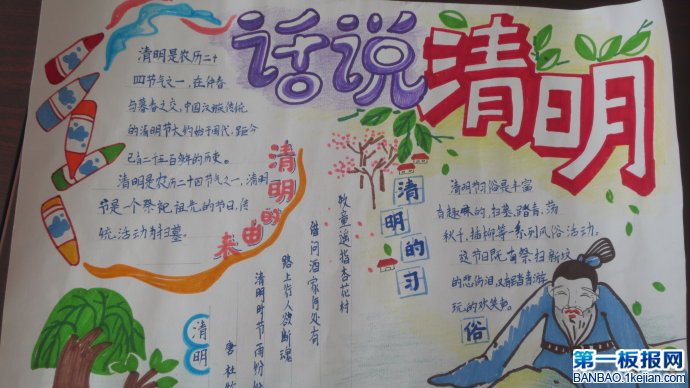 话说清明
清明是农历二十
四节气之一,在仲春
与暮春之交,中国汉族传统
的清明节大约始于周代,距今
已有二千五百多年的历史。
清明是农历二十四节气之一,清明
节是一个祭祀祖先的节日,传
统活动为扫墓。
清明的由来
清明
唐 杜牧
清明时节雨纷纷
路上行人欲断魂
借问酒家何处有
牧童遥指杏花村
清明的习俗
清明节习俗是丰富
有趣味的,扫墓、踏青、荡
秋千、插柳等一系列风俗活动。
这节日既有祭扫新坟
的悲伤泪,又有踏青游
玩的欢笑声。
第一板报网
BANBAO.1kejian.com